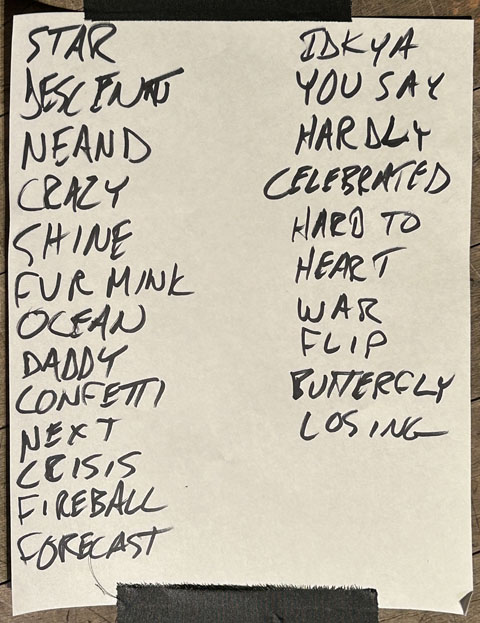 STAR
DESCENT
NEAND
CRAZY
SHINE
FUR MINK
OCEAN
DADDY
CONFETTI
NEXT
CRISIS
FIREBALL
FORECAST
IDKYA
YOU SAY
HARDLY
CELEBRATED
HARD TO
HEART
WAR
FLIP
BUTTERFLY
LOSING